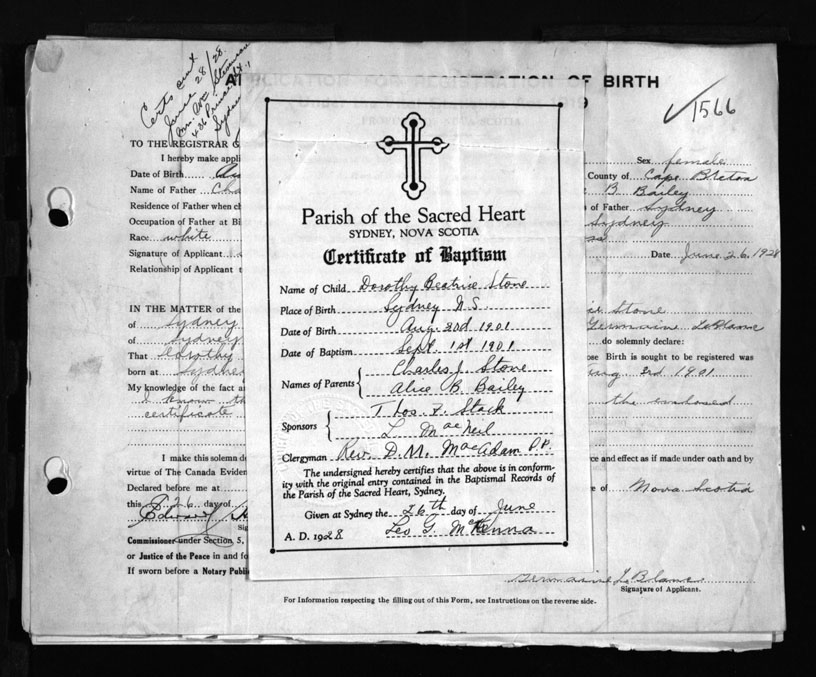 Certs sent
June 28/28
486 Prince St.,
Sydney
APPLICATION FOR REGISTRATION OF BIRTH
1566
TO THE REGISTRAR G
I hereby make appli
Sex female
Date of Birth
County of Cape Breton
Name of Father Cha
B. Bailey
Residence of Father when ch
of Father Sydney
Occupation of Father at Bi
Sydney
Race white
Signature of Applicant
Date June 26 1928
Relationship of Applicant t
IN THE MATTER of the
Stone
of Sydney
Germaine LeBlanc
of Sydney
do solemnly declare:
That Dorothy
ose Birth is sought to be registered was
born at Sydne
3rd 1901
My knowledge of the fact a
I know th
the enclosed
certificate
I make this solemn d
ce and effect as if made under oath and by
virtue of The Canada Eviden
Declared before me at
of Nova Scotia
this 26 day of
Edward
Commissioner under Section 5,
or Justice of the Peace in and fo
If sworn before a Notary Publi
Germaine LeBlanc
Signature of Applicant.
For Information respecting the filling out of this Form, see Instructions on the reverse side.
Parish of the Sacred Heart
SYDNEY, NOVA SCOTIA
Certificate of Baptism
Name of Child Dorothy Beatrice Stone
Place of Birth Sydney N.S.
Date of Birth Aug. 3rd 1901
Date of Baptism Sept. 1st 1901
Names of Parents Charles J. Stone
Alice B. Bailey
Sponsors Thos. F. Stack
L. MacNeil
Clergyman Rev. D. M. MacAdam P.P.
The undersigned hereby certifies that the above is in conform-
ity with the original entry contained in the Baptismal Records of
the Parish of the Sacred Heart, Sydney.
Given at Sydney the 26th day of June
A. D. 1928 Leo G. McKenna